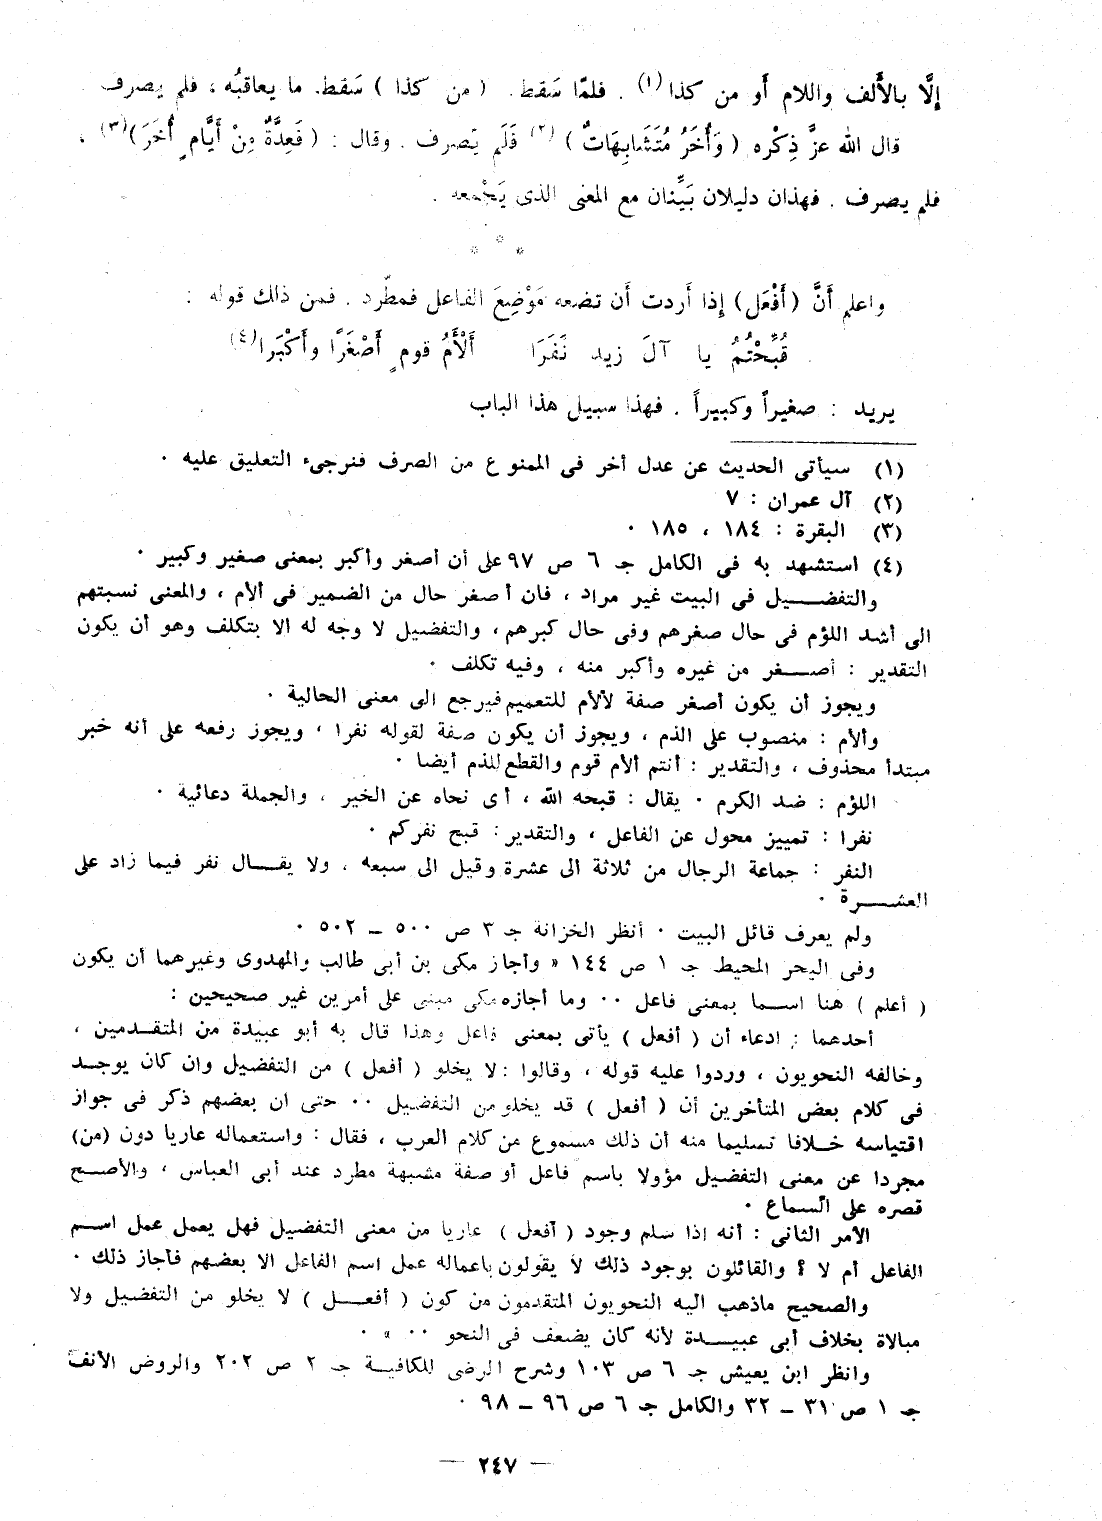 إلَّا بالأَلف واللام أَو من كذا (١) . فلمّا سَقط . ( من كذا ) سَقط . ما يعاقبُه ، فلم يصرف
قال الله عزَّ ذِكْره ( وَأُخَرُ مُتَشَابِهَاتٌ ) (٢) فَلَم يَصرف . وقال : ( فَعِدَّةٌ مِنْ أَيَّامٍ أُخَرَ ) (٣) .
فلم يصرف . فهذان دليلان بَيِّنان مع المعنى الذى يَجْمعه .
* * *
واعلم أَنَّ (أَفْعَل) إذا أَردت أَن تضعه مَوْضِعَ الفاعل فمطّرد . فمن ذلك قوله :
قُبِّحْتُمُ يا آلَ زيد نَفَرَا أَلْأَمُ قومٍ أَصْغَرًا وأَكْبَرا (٤)
يريد : صغيراً وكبيراً . فهذا سبيل هذا الباب
(١) سيأتى الحديث عن عدل أخر فى الممنوع من الصرف فنرجىء التعليق عليه .
(٢) آل عمران : ٧
(٣) البقرة : ١٨٤ ، ١٨٥ .
(٤) استشهد به فى الكامل جـ ٦ ص ٩٧ على أن أصغر وأكبر بمعنى صغير وكبير .
والتفضيل فى البيت غير مراد ، فان أصغر حال من الضمير فى ألأم ، والمعنى نسبتهم
الى أشد اللؤم فى حال صغرهم وفى حال كبرهم ، والتفضيل لا وجه له الا بتكلف وهو أن يكون
التقدير : أصغر من غيره وأكبر منه ، وفيه تكلف .
ويجوز أن يكون أصغر صفة لألأم للتعميم فيرجع الى معنى الحالية .
وألأم : منصوب على الذم ، ويجوز أن يكون صفة لقوله نفرا ، ويجوز رفعه على أنه خبر
مبتدأ محذوف ، والتقدير : أنتم ألأم قوم والقطع للذم أيضا .
اللؤم : ضد الكرم . يقال : قبحه الله ، أى نحاه عن الخير ، والجملة دعائية .
نفرا : تمييز محول عن الفاعل ، والتقدير : قبح نفركم .
النفر : جماعة الرجال من ثلاثة الى عشرة وقيل الى سبعه ، ولا يقال نفر فيما زاد على
العشرة .
ولم يعرف قائل البيت . أنظر الخزانة جـ ٣ ص ٥٠٠ – ٥٠٢ .
وفى البحر المحيط جـ ١ ص ١٤٤ « وأجاز مكى بن أبى طالب والمهدوى وغيرهما أن يكون
( أعلم ) هنا اسما بمعنى فاعل .. وما أجازه مكى مبنى على أمرين غير صحيحين :
أحدهما : ادعاء أن ( أفعل ) يأتى بمعنى فاعل وهذا قال به أبو عبيدة من المتقدمين ،
وخالفه النحويون ، وردوا عليه قوله ، وقالوا : لا يخلو ( أفعل ) من التفضيل وان كان يوجد
فى كلام بعض المتأخرين أن ( أفعل ) قد يخلو من التفضيل .. حتى ان بعضهم ذكر فى جواز
اقتياسه خلافا تسليما منه أن ذلك مسموع من كلام العرب ، فقال : واستعماله عاريا دون (من)
مجردا عن معنى التفضيل مؤولا باسم فاعل أو صفة مشبهة مطرد عند أبى العباس ، والأصح
قصره على السماع .
الأمر الثانى : أنه اذا سلم وجود ( أفعل ) عاريا من معنى التفضيل فهل يعمل عمل اسم
الفاعل أم لا ؟ والقائلون بوجود ذلك لا يقولون باعماله عمل اسم الفاعل الا بعضهم فأجاز ذلك .
والصحيح ماذهب اليه النحويون المتقدمون من كون ( أفعل ) لا يخلو من التفضيل ولا
مبالاة بخلاف أبى عبيدة لأنه كان يضعف فى النحو .. » .
وانظر ابن يعيش جـ ٦ ص ١٠٣ وشرح الرضى للكافية جـ ٢ ص ٢٠٢ والروض الأنف
جـ ١ ص ٣١ – ٣٢ والكامل جـ ٦ ص ٩٦ – ٩٨ .
– ٢٤٧ –